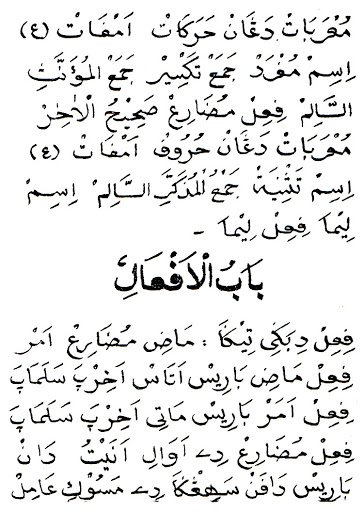 مُعْرَبَاتْ دَڠَانْ حَرَكَاتْ اَمْفَاتْ (٤)
اِسِمْ مُفْرَدْ جَمَعْ تَكْسِيْرْ جَمَعْ المُؤَنَّثِ
السَّالِمْ فِعِلْ مُضَارِعْ صَحِيْحُ الْاٰخِرْ
مُعْرَبَاتْ دَڠَانْ حُرُوْفْ اَمْفَاتْ (٤)
اِسِمْ تَثْنِيَةْ جَمْعُ الْمُذَكَّرِ السَّالِمْ اِسِمْ
لِيْمَا فِعِلْ لِيْمَا -
بَابُ الْاَفْعَالِ
فِعِلْ دِبَكِى تِيْكَا : مَاضِ مُضَارِعْ اَمَرْ
فِعِلْ مَاضِ بَارِيْسْ اَتَاسْ اَخِرْپَ سَلَمَاپَ
فِعِلْ اَمَرْ بَارِيْسْ مَاتِى اَخِرْپَ سَلَمَاپَ
فِعِلْ مُضَارِعْ دِے اَوَالِ اَنَيْتُ دَانْ
بَارِيْسْ دَافَنْ سَهِڠْكَا دِے مَسُوْكِ عَامِلْ